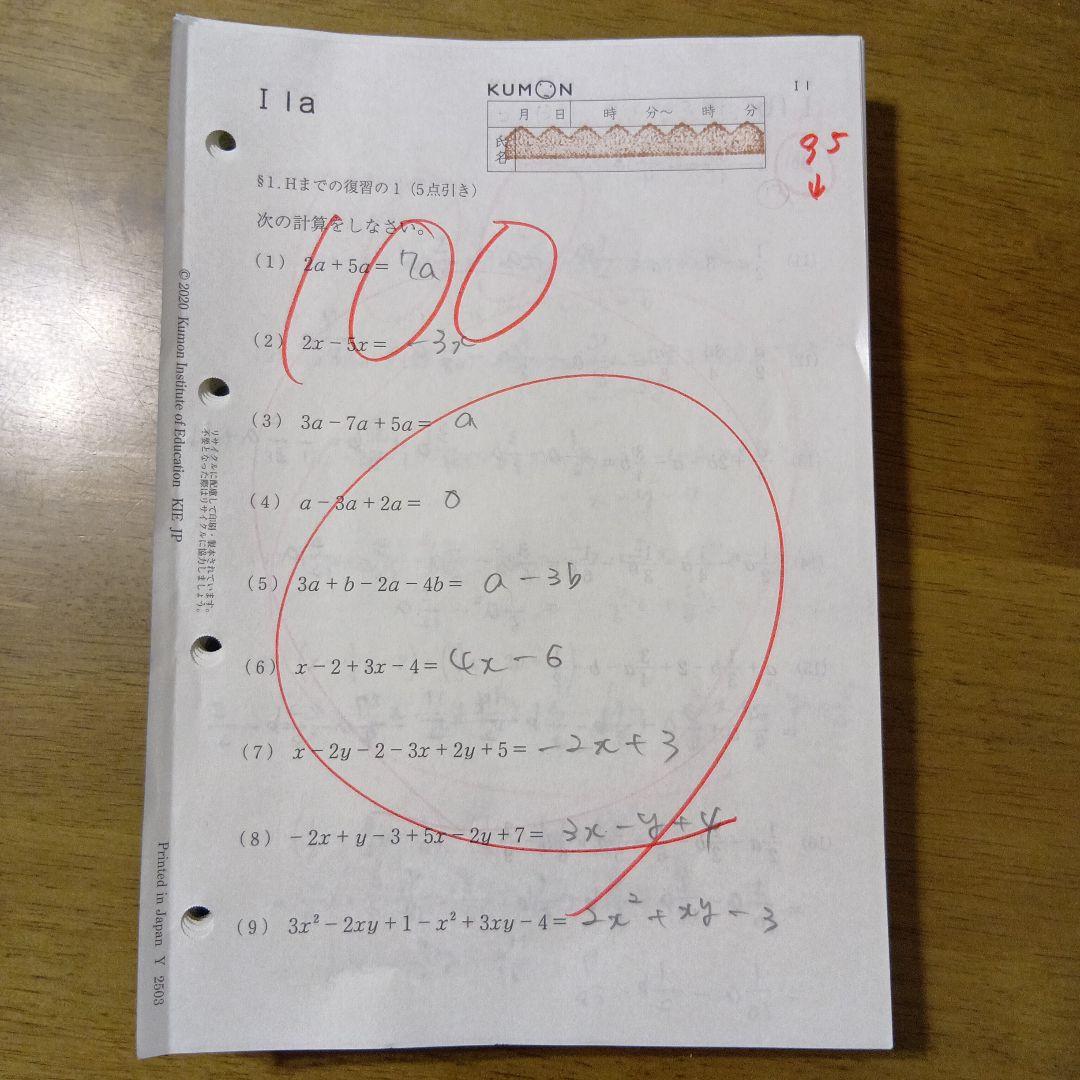 I 1a
KUMON
I 1
月 日 時 分～ 時 分
氏名
95
↓
§1.Hまでの復習の1（5点引き）
次の計算をしなさい。
100
(1) 2a＋5a＝ 7a
(2) 2x－5x＝ －3x
(3) 3a－7a＋5a＝ a
(4) a－3a＋2a＝ 0
(5) 3a＋b－2a－4b＝ a－3b
(6) x－2＋3x－4＝ 4x－6
(7) x－2y－2－3x＋2y＋5＝ －2x＋3
(8) －2x＋y－3＋5x－2y＋7＝ 3x－y＋4
(9) 3x²－2xy＋1－x²＋3xy－4＝ 2x²＋xy－3
© 2020 Kumon Institute of Education KIE JP
リサイクルに配慮して印刷・製本されています。
不要となった際はリサイクルに協力しましょう。
Printed in Japan Y 2503